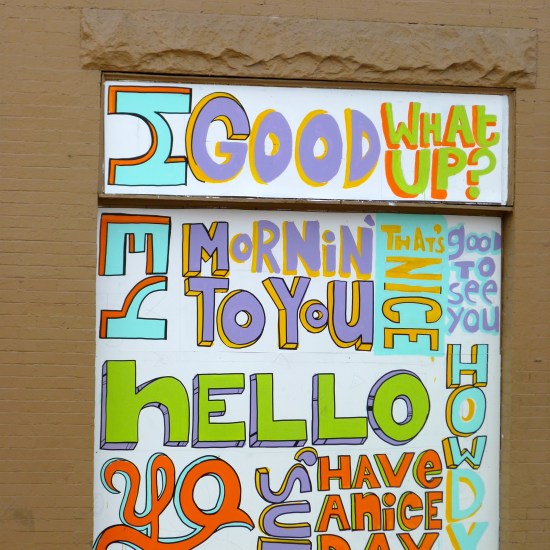 HEY
GOOD
MORNIN'
TO YOU
WHAT
UP?
THAT'S
NICE
GOOD
TO
SEE
YOU
HELLO
HOWDY
YO
'SUP
HAVE
A NICE
DAY